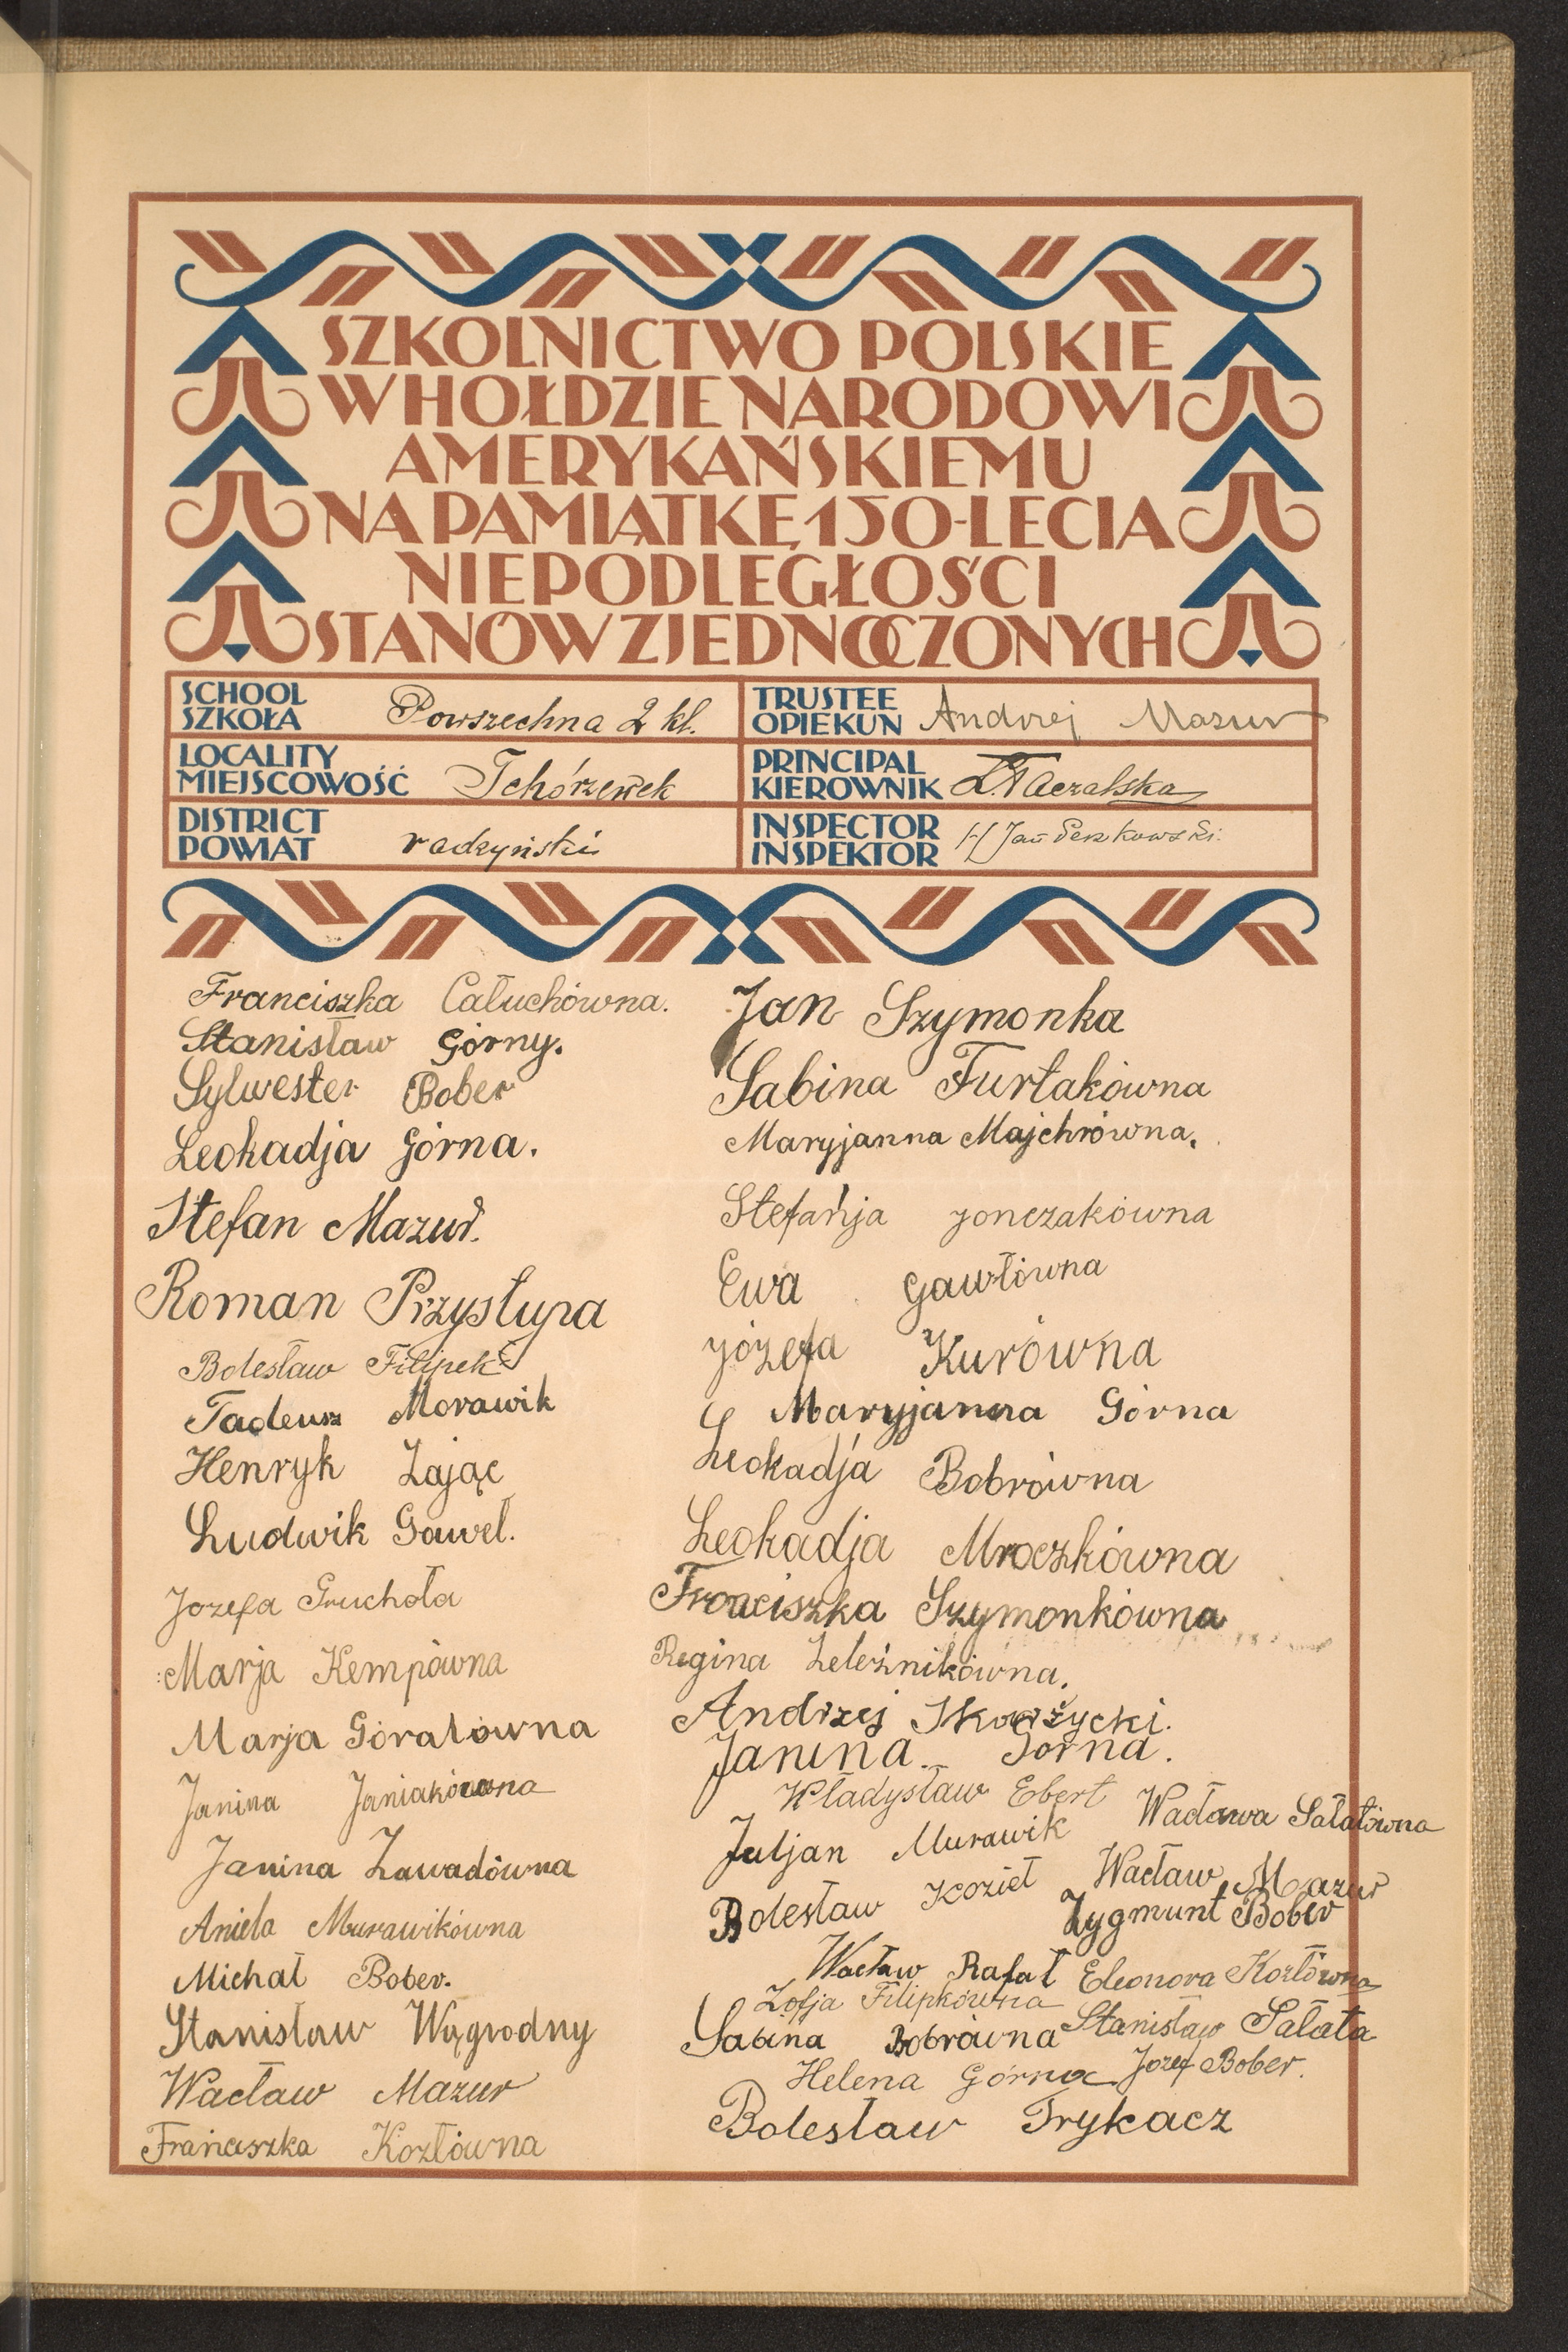 SZKOLNICTWO POLSKIE
W HOŁDZIE NARODOWI
AMERYKAŃSKIEMU
NA PAMIĄTKĘ 150-LECIA
NIEPODLEGŁOŚCI
STANÓW ZJEDNOCZONYCH
SCHOOL
SZKOŁA Powszechna 2 kl.
TRUSTEE
OPIEKUN Andrzej Mazur
LOCALITY
MIEJSCOWOŚĆ Tchórzewek
PRINCIPAL
KIEROWNIK
DISTRICT
POWIAT radzyński
INSPECTOR
INSPEKTOR
Franciszka Całuchówna.
Stanisław Górny.
Sylwester Bober
Leokadja Górna.
Stefan Mazur.
Roman Przystupa
Bolesław Filipek
Tadeusz Morawik
Henryk Zając
Ludwik Gaweł.
Jozefa Gruchoła
Marja Kempówna
Marja Góralówna
Janina Janiakówna
Janina Zawadówna
Aniela Murawikówna
Michał Bober.
Stanisław Wągrodny
Wacław Mazur
Franciszka Kozłówna
Jan Szymonka
Sabina Furtakówna
Maryjanna Majchrówna.
Stefanja Jonczakówna
Ewa Gawłówna
Józefa Kurówna
Maryjanna Górna
Leokadja Bobrówna
Leokadja Mroczkówna
Franciszka Szymonkówna
Regina Zeleźnikówna.
Andrzej
Janina Górna.
Władysław Ebert
Wacława Sałatówna
Juljan Murawik
Wacław Mazur
Bolesław Kozieł
Zygmunt Bober
Wacław Rafał
Eleonora Kozłówna
Zofja Filipkówna
Stanisław Sałata
Sabina Bobrówna
Jozef Bober.
Helena Górna
Bolesław Trykacz